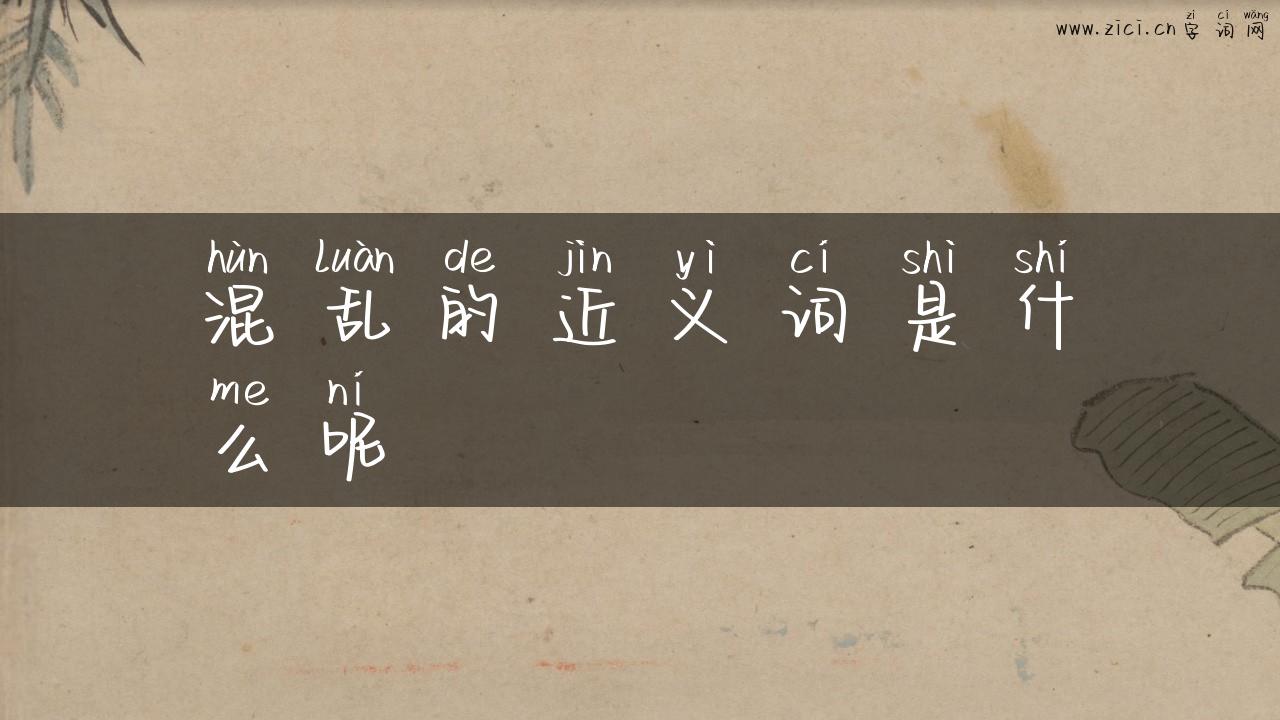 zì cí wǎng
www.zici.cn 字词网
hùn luàn de jìn yì cí shì shí
混乱的近义词是什
me ní
么呢